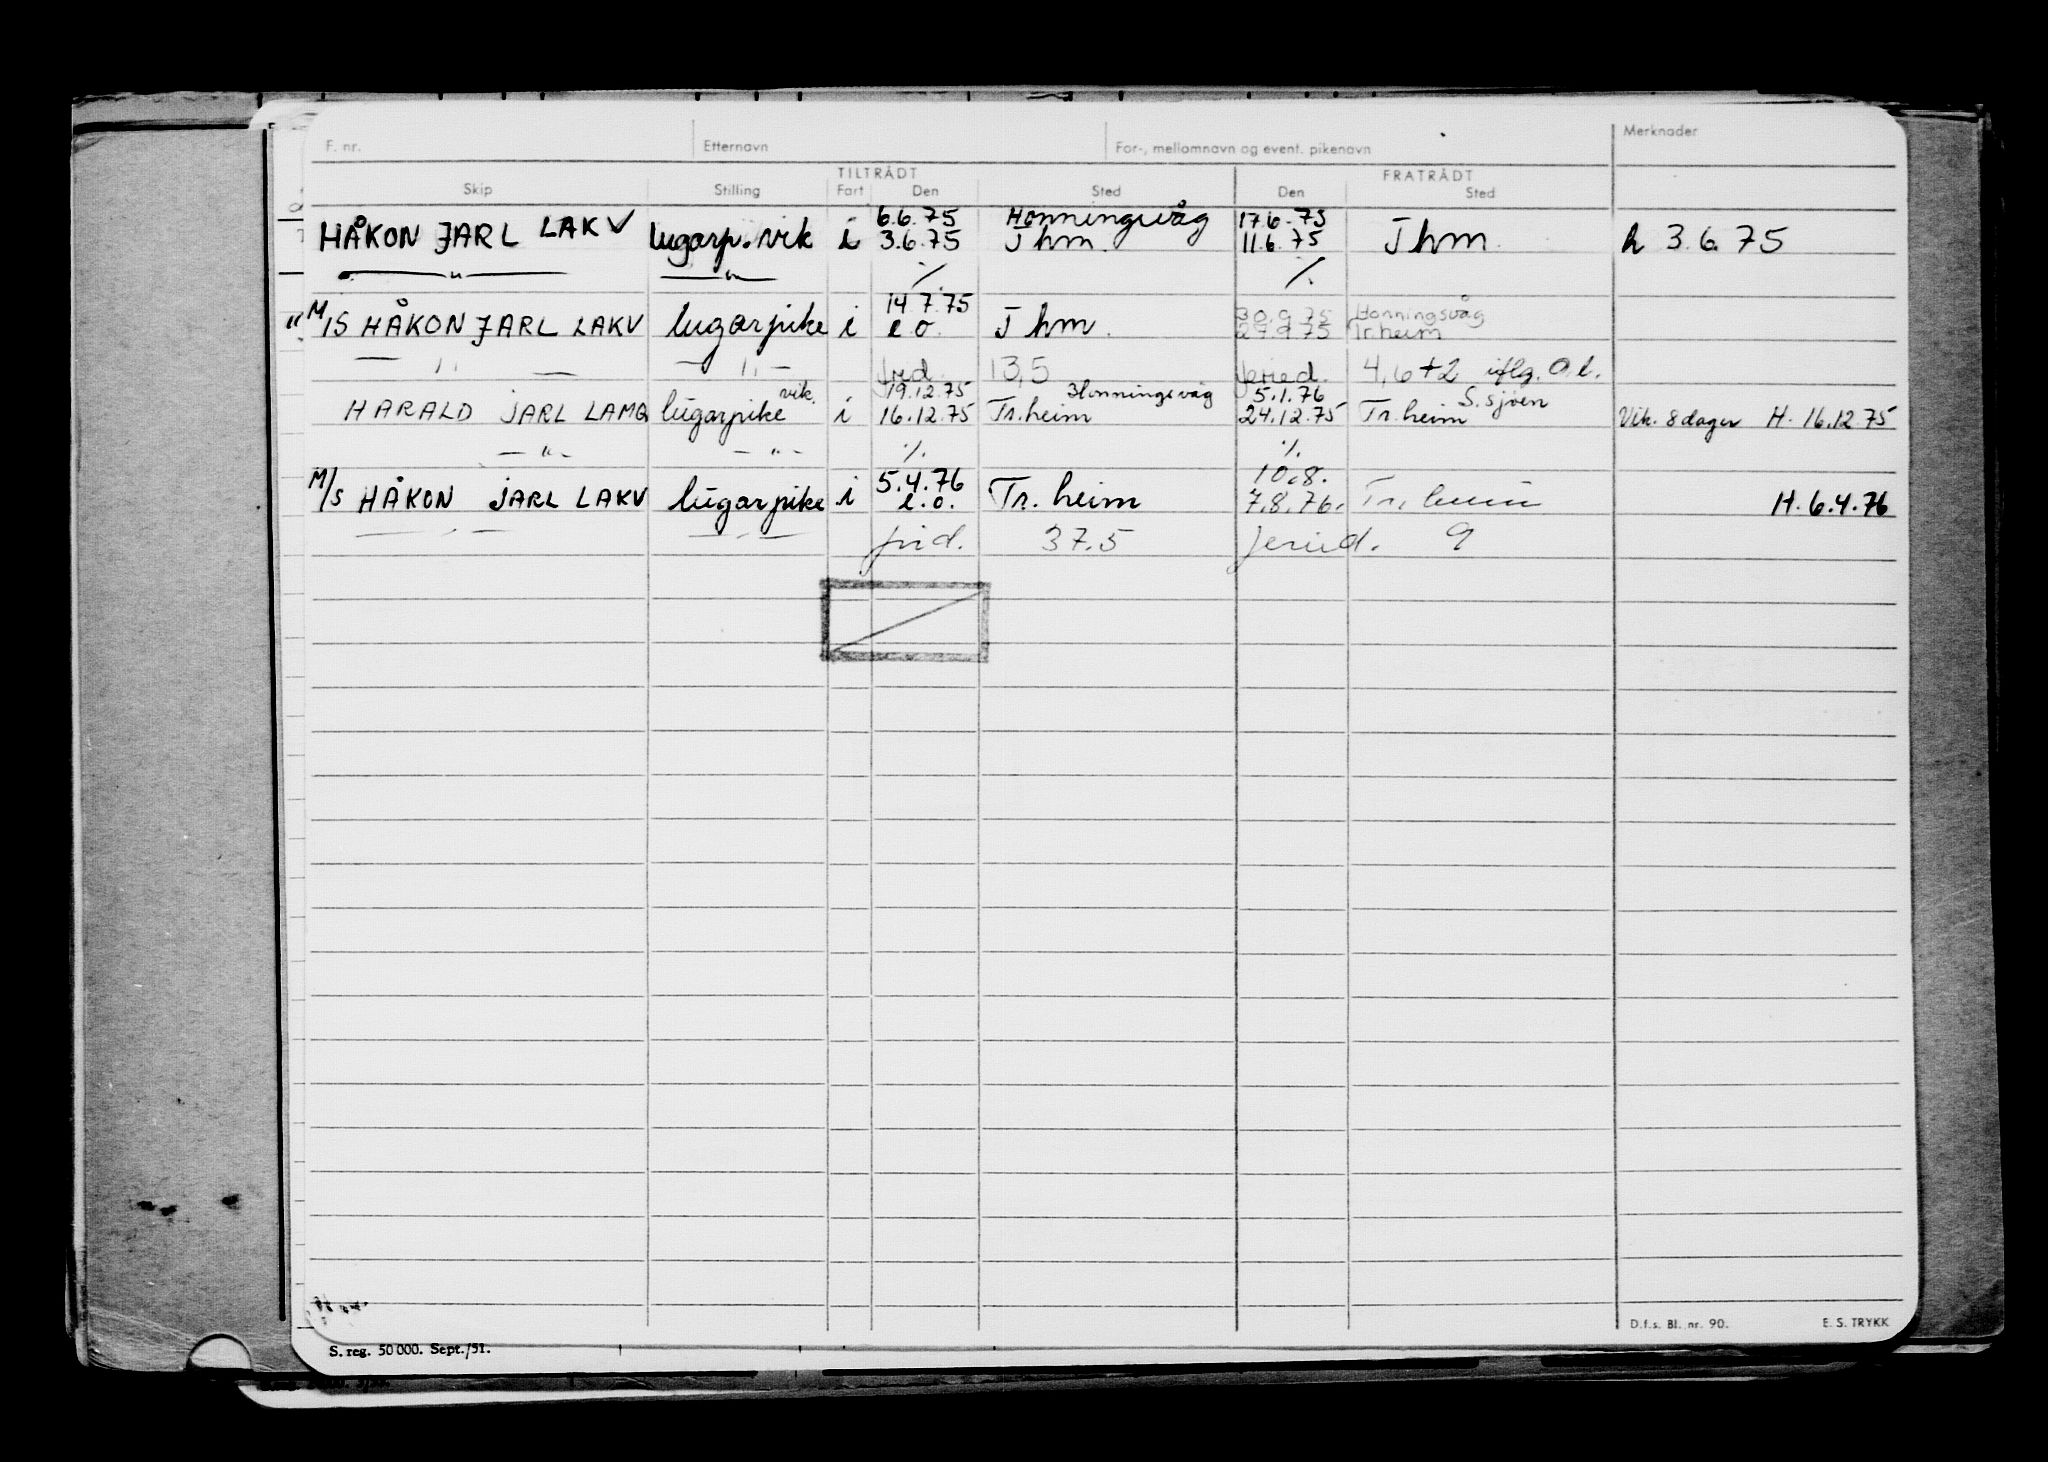 F. nr. Etternavn For-, mellomnavn og event. pikenavn Merknader
TILTRÅDT FRATRÅDT
Skip Stilling Fart Den Sted Den Sted
6.6.75 Honningsvåg 17.6.75
HÅKON JARL LAKV lugarp. vik i 3.6.75 Thm. 11.6.75 Thm. h 3.6.75
— " — — " — ٪. ٪.
14.7.75 30.9.75 Honningsvåg
" M/S HÅKON JARL LAKV lugarpike i e.o. Thm. 27.9.75 Tr.heim
— " — — " — frid. 13,5 feried. 4,6+2 iflg. O.l.
vik. 19.12.75 Honningsvåg 5.1.76 S.sjøen
HARALD JARL LAMQ lugarpike i 16.12.75 Tr.heim 24.12.75 Tr.heim Vik. 8 dager H. 16.12.75
— " — — " — ٪. ٪.
5.4.76 10.8.
M/S HÅKON JARL LAKV lugarpike i e.o. Tr. heim 7.8.76. Tr. heim H. 6.4.76
— " — — " — frid. 37.5 feried. 9
D.f.s. Bl. nr. 90. E. S. TRYKK
S. reg. 50 000. Sept./51.